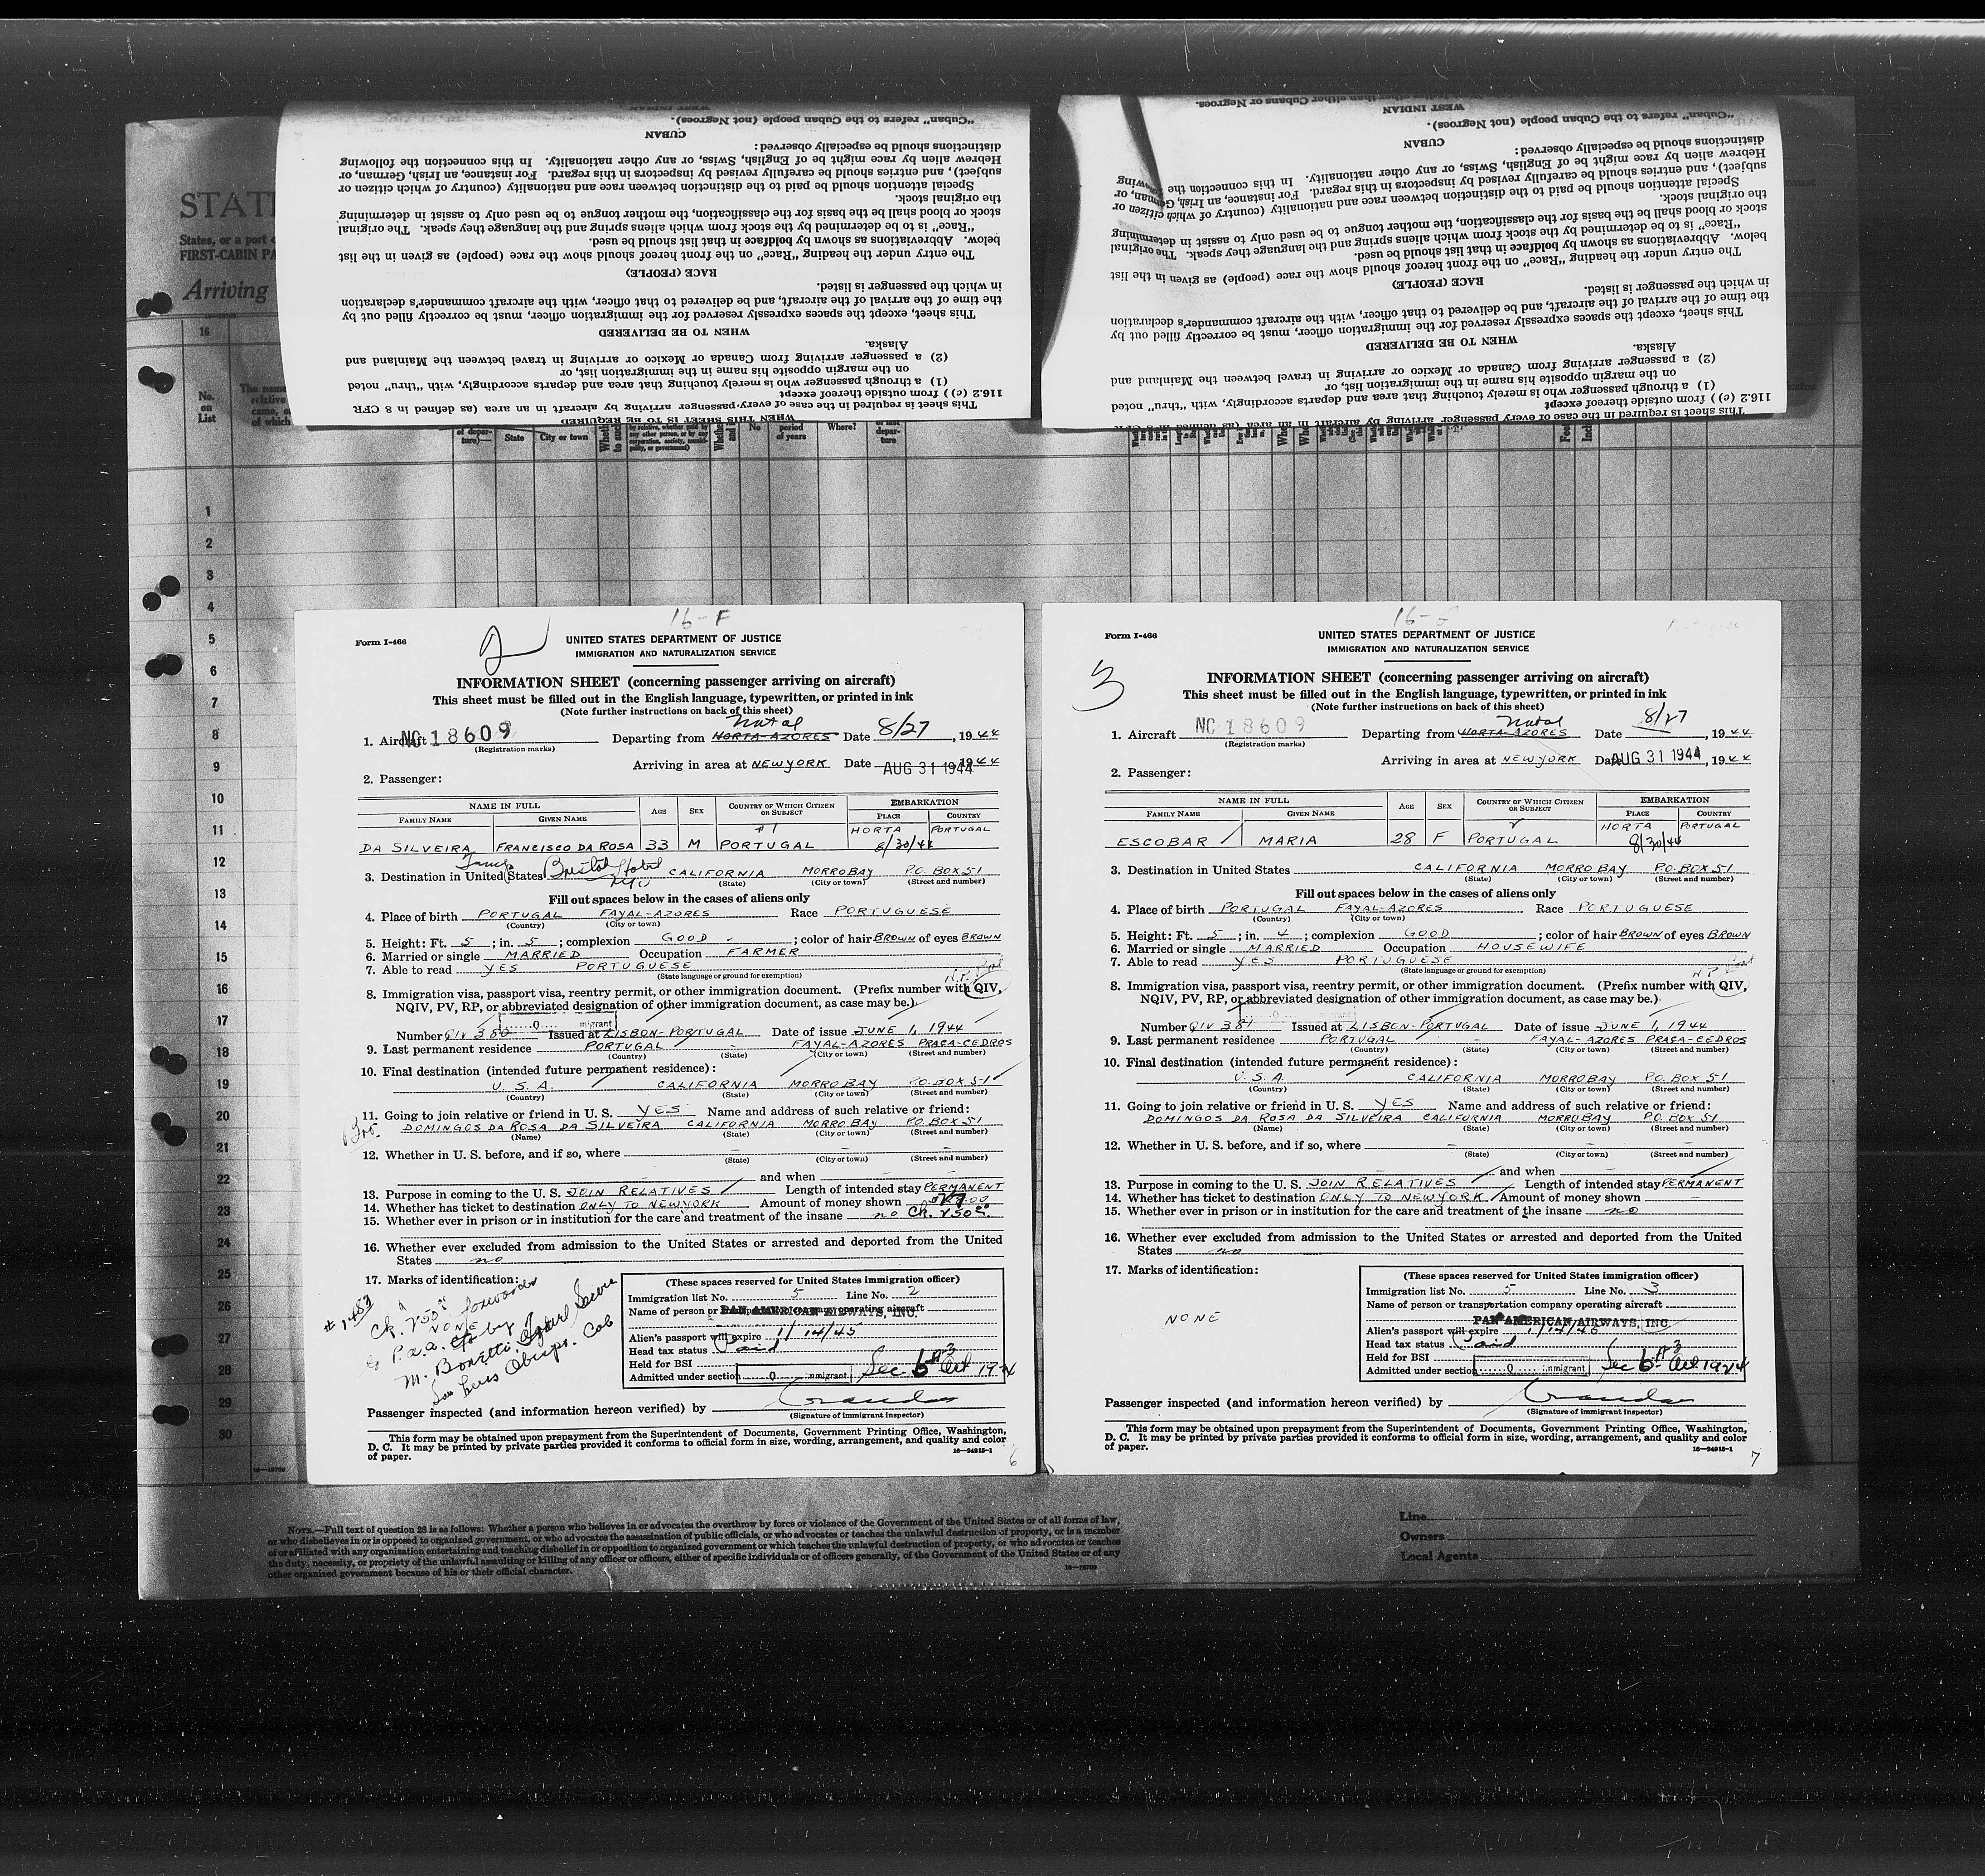 "Cuban" refers to the Cuban people (not Negroes).
CUBAN
distinctions should be especially observed:
Hebrew alien by race might be of English, Swiss, or any other nationality. In this connection the following
subject), and entries should be carefully revised by inspectors in this regard. For instance, an Irish, German, or
Special attention should be paid to the distinction between race and nationality (country of which citizen or
the original stock.
stock or blood shall be the basis for the classification, the mother tongue to be used only to assist in determining
"Race" is to be determined by the stock from which aliens spring and the language they speak. The original
below. Abbreviations as shown by boldface in that list should be used.
The entry under the heading "Race" on the front hereof should show the race (people) as given in the list
RACE (PEOPLE)
in which the passenger is listed.
the time of the arrival of the aircraft, and be delivered to that officer, with the aircraft commander's declaration
This sheet, except the spaces expressly reserved for the immigration officer, must be correctly filled out by
WHEN TO BE DELIVERED
Alaska.
(2) a passenger arriving from Canada or Mexico or arriving in travel between the Mainland and
on the margin opposite his name in the immigration list, or
(1) a through passenger who is merely touching that area and departs accordingly, with "thru" noted
116.2 (c)) from outside thereof except
This sheet is required in the case of every passenger arriving by aircraft in an area (as defined in 8 CFR
WHEN THIS SHEET IS TO BE REQUIRED
WEST INDIAN
"Cuban" refers to the Cuban people (not Negroes).
CUBAN
distinctions should be especially observed:
Hebrew alien by race might be of English, Swiss, or any other nationality. In this connection the following
subject), and entries should be carefully revised by inspectors in this regard. For instance, an Irish, German, or
Special attention should be paid to the distinction between race and nationality (country of which citizen or
the original stock.
stock or blood shall be the basis for the classification, the mother tongue to be used only to assist in determining
"Race" is to be determined by the stock from which aliens spring and the language they speak. The original
below. Abbreviations as shown by boldface in that list should be used.
The entry under the heading "Race" on the front hereof should show the race (people) as given in the list
RACE (PEOPLE)
in which the passenger is listed.
the time of the arrival of the aircraft, and be delivered to that officer, with the aircraft commander's declaration
This sheet, except the spaces expressly reserved for the immigration officer, must be correctly filled out by
WHEN TO BE DELIVERED
Alaska.
(2) a passenger arriving from Canada or Mexico or arriving in travel between the Mainland and
on the margin opposite his name in the immigration list, or
(1) a through passenger who is merely touching that area and departs accordingly, with "thru" noted
116.2 (c)) from outside thereof except
This sheet is required in the case of every passenger arriving by aircraft in an area (as defined in 8 CFR
STAT
States, or a port
FIRST-CABIN PA
Arriving
16
No. on List
State City or town
No period of years Where?
1
2
3
4
5
6
7
8
9
10
11
12
13
14
15
16
17
18
19
20
21
22
23
24
25
26
27
28
29
30
16-F
Form I-466
2
UNITED STATES DEPARTMENT OF JUSTICE
IMMIGRATION AND NATURALIZATION SERVICE
INFORMATION SHEET (concerning passenger arriving on aircraft)
This sheet must be filled out in the English language, typewritten, or printed in ink
(Note further instructions on back of this sheet)
1. Aircraft NC 18609 Departing from HORTA-AZORES Natal Date 8/27, 1944
(Registration marks)
Arriving in area at NEW YORK Date AUG 31 1944 1944
2. Passenger:
NAME IN FULL AGE SEX COUNTRY OF WHICH CITIZEN OR SUBJECT EMBARKATION
FAMILY NAME GIVEN NAME PLACE COUNTRY
DA SILVEIRA FRANCISCO DA ROSA 33 M PORTUGAL HORTA 8/30/44 PORTUGAL
3. Destination in United States Bristol Hotel NYC CALIFORNIA MORRO BAY P.O. BOX 51
(State) (City or town) (Street and number)
Fill out spaces below in the cases of aliens only
4. Place of birth PORTUGAL FAYAL-AZORES Race PORTUGUESE
(Country) (City or town)
5. Height: Ft. 5; in. 5; complexion GOOD; color of hair BROWN of eyes BROWN
6. Married or single MARRIED Occupation FARMER
7. Able to read YES PORTUGUESE
(State language or ground for exemption)
8. Immigration visa, passport visa, reentry permit, or other immigration document. (Prefix number with QIV,
NQIV, PV, RP, or abbreviated designation of other immigration document, as case may be.)
Number QIV 380 Issued at LISBON-PORTUGAL Date of issue JUNE 1, 1944
9. Last permanent residence PORTUGAL - FAYAL-AZORES PRAÇA-CEDROS
(Country) (State) (City or town) (Street and number)
10. Final destination (intended future permanent residence):
U.S.A. CALIFORNIA MORRO BAY P.O. BOX 51
(Country) (State) (City or town) (Street and number)
11. Going to join relative or friend in U. S. YES Name and address of such relative or friend:
Bro. DOMINGOS DA ROSA DA SILVEIRA CALIFORNIA MORRO BAY P.O. BOX 51
(Name) (State) (City or town) (Street and number)
12. Whether in U. S. before, and if so, where
(State) (City or town) (Street and number)
and when
13. Purpose in coming to the U. S. JOIN RELATIVES Length of intended stay PERMANENT
14. Whether has ticket to destination ONLY TO NEW YORK Amount of money shown
15. Whether ever in prison or in institution for the care and treatment of the insane no
16. Whether ever excluded from admission to the United States or arrested and deported from the United
States no
17. Marks of identification:
NONE
# 1483
P.a.a. by
M. Bonetti Travel Service
San Luis Obispo. Cal
(These spaces reserved for United States immigration officer)
Immigration list No. 5 Line No. 2
Name of person or transportation company operating aircraft
PAN AMERICAN AIRWAYS, INC.
Alien's passport will expire 1/14/45
Head tax status Paid
Held for BSI
Admitted under section Sec 6 A-3 Act 1924
Passenger inspected (and information hereon verified) by
(Signature of immigrant inspector)
This form may be obtained upon prepayment from the Superintendent of Documents, Government Printing Office, Washington,
D. C. It may be printed by private parties provided it conforms to official form in size, wording, arrangement, and quality and color
of paper. 16—24915-1
6
Form I-466
3
UNITED STATES DEPARTMENT OF JUSTICE
IMMIGRATION AND NATURALIZATION SERVICE
INFORMATION SHEET (concerning passenger arriving on aircraft)
This sheet must be filled out in the English language, typewritten, or printed in ink
(Note further instructions on back of this sheet)
1. Aircraft NC 18609 Departing from HORTA-AZORES Natal Date 8/27, 1944
(Registration marks)
Arriving in area at NEW YORK Date AUG 31 1944, 1944
2. Passenger:
NAME IN FULL AGE SEX COUNTRY OF WHICH CITIZEN OR SUBJECT EMBARKATION
FAMILY NAME GIVEN NAME PLACE COUNTRY
ESCOBAR MARIA 28 F PORTUGAL HORTA 8/30/44 PORTUGAL
3. Destination in United States CALIFORNIA MORRO BAY P.O. BOX 51
(State) (City or town) (Street and number)
Fill out spaces below in the cases of aliens only
4. Place of birth PORTUGAL FAYAL-AZORES Race PORTUGUESE
(Country) (City or town)
5. Height: Ft. 5; in. 4; complexion GOOD; color of hair BROWN of eyes BROWN
6. Married or single MARRIED Occupation HOUSEWIFE
7. Able to read YES PORTUGUESE
(State language or ground for exemption)
8. Immigration visa, passport visa, reentry permit, or other immigration document. (Prefix number with QIV,
NQIV, PV, RP, or abbreviated designation of other immigration document, as case may be.)
Number QIV 381 Issued at LISBON-PORTUGAL Date of issue JUNE 1, 1944
9. Last permanent residence PORTUGAL - FAYAL-AZORES PRAÇA-CEDROS
(Country) (State) (City or town) (Street and number)
10. Final destination (intended future permanent residence):
U.S.A. CALIFORNIA MORRO BAY P.O. BOX 51
(Country) (State) (City or town) (Street and number)
11. Going to join relative or friend in U. S. YES Name and address of such relative or friend:
DOMINGOS DA ROSA DA SILVEIRA CALIFORNIA MORRO BAY P.O. BOX 51
(Name) (State) (City or town) (Street and number)
12. Whether in U. S. before, and if so, where
(State) (City or town) (Street and number)
and when
13. Purpose in coming to the U. S. JOIN RELATIVES Length of intended stay PERMANENT
14. Whether has ticket to destination ONLY TO NEW YORK Amount of money shown
15. Whether ever in prison or in institution for the care and treatment of the insane no
16. Whether ever excluded from admission to the United States or arrested and deported from the United
States no
17. Marks of identification:
NONE
(These spaces reserved for United States immigration officer)
Immigration list No. 5 Line No. 3
Name of person or transportation company operating aircraft
PAN AMERICAN AIRWAYS, INC.
Alien's passport will expire 1/14/45
Head tax status Paid
Held for BSI
Admitted under section Sec 6 A-3 Act 1924
Passenger inspected (and information hereon verified) by
(Signature of immigrant inspector)
This form may be obtained upon prepayment from the Superintendent of Documents, Government Printing Office, Washington,
D. C. It may be printed by private parties provided it conforms to official form in size, wording, arrangement, and quality and color
of paper. 16—24915-1
7
NOTE.—Full text of question 28 is as follows: Whether a person who believes in or advocates the overthrow by force or violence of the Government of the United States or of all forms of law,
or who disbelieves in or is opposed to organized government, or who advocates the assassination of public officials, or who advocates or teaches the unlawful destruction of property, or is a member
of or affiliated with any organization entertaining and teaching disbelief in or opposition to organized government or which teaches the unlawful destruction of property, or who advocates or teaches
the duty, necessity, or propriety of the unlawful assaulting or killing of any officer or officers, either of specific individuals or of officers generally, of the Government of the United States or of any
other organized government because of his or their official character.
Line
Owners
Local Agents